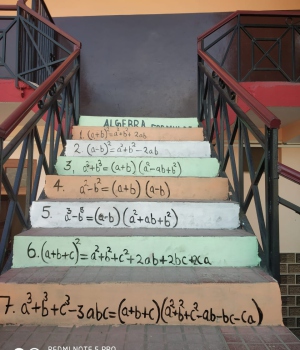 ALGEBRA FORMULAS
1. (a+b)²=a²+b²+2ab
2. (a-b)²=a²+b²-2ab
3. a³+b³=(a+b)(a²-ab+b²)
4. a²-b²=(a+b)(a-b)
5. a³-b³=(a-b)(a²+ab+b²)
6. (a+b+c)²=a²+b²+c²+2ab+2bc+2ca
7. a³+b³+c³-3abc=(a+b+c)(a²+b²+c²-ab-bc-ca)
REDMI NOTE 5 PRO